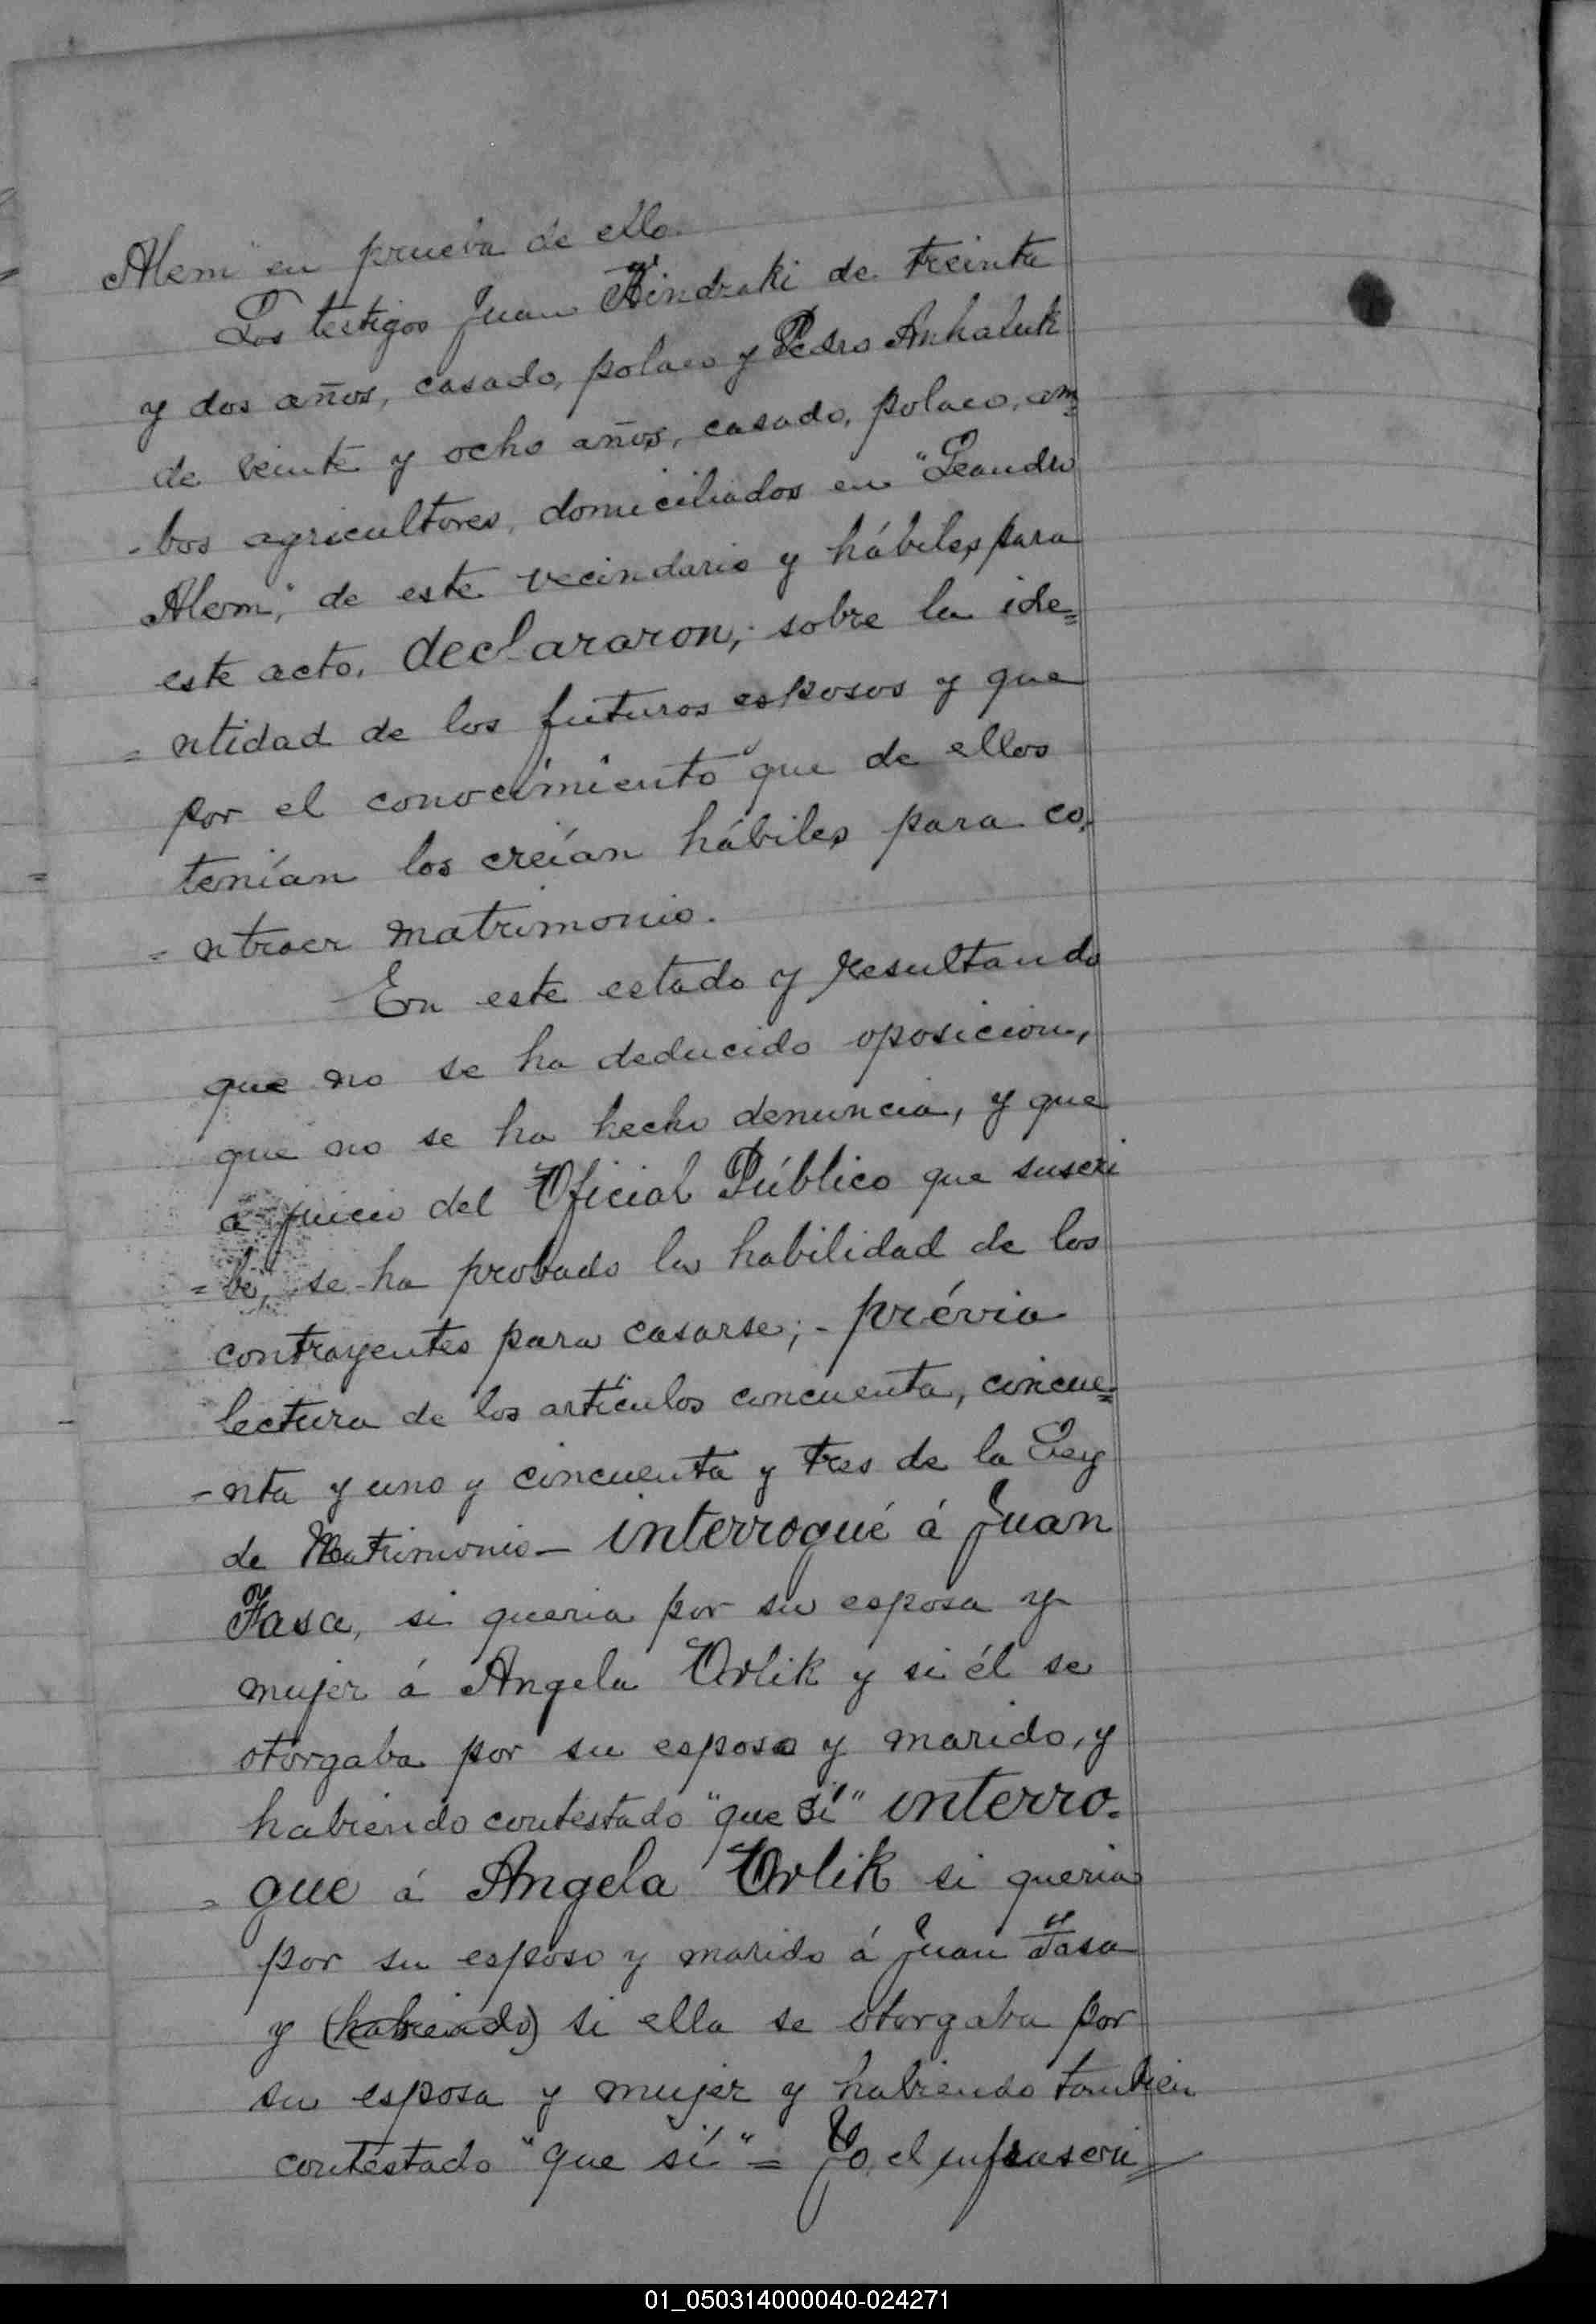 Alem" en prueba de ello.
Los testigos Juan Hindraki de treinta
y dos años, casado, polaco y Pedro Anhaluk
de veinte y ocho años, casado, polaco, am=
-bos agricultores, domiciliados en "Leandro
Alem", de este vecindario y hábiles para
este acto, declararon, sobre la ide=
=ntidad de los futuros esposos y que
por el conocimiento que de ellos
tenían los creían hábiles para co=
=ntraer matrimonio.
En este estado y resultando
que no se ha deducido oposicion,
que no se ha hecho denuncia, y que
á juicio del Oficial Público que suscri
=be, se ha probado la habilidad de los
contrayentes para casarse; - prévia
lectura de los artículos cincuenta, cincue=
-nta y uno y cincuenta y tres de la Ley
de Matrimonio - interrogué á Juan
Fasa, si queria por su esposa y
mujer á Angela Orlik y si él se
otorgaba por su esposo y marido, y
habiendo contestado "que sí" interro=
=gue á Angela Orlik si queria
por su esposo y marido á Juan Fasa
y (habiendo) si ella se otorgaba por
su esposa y mujer y habiendo tambien
contestado "que sí" = Yo, el infrascri=
01_050314000040-024271